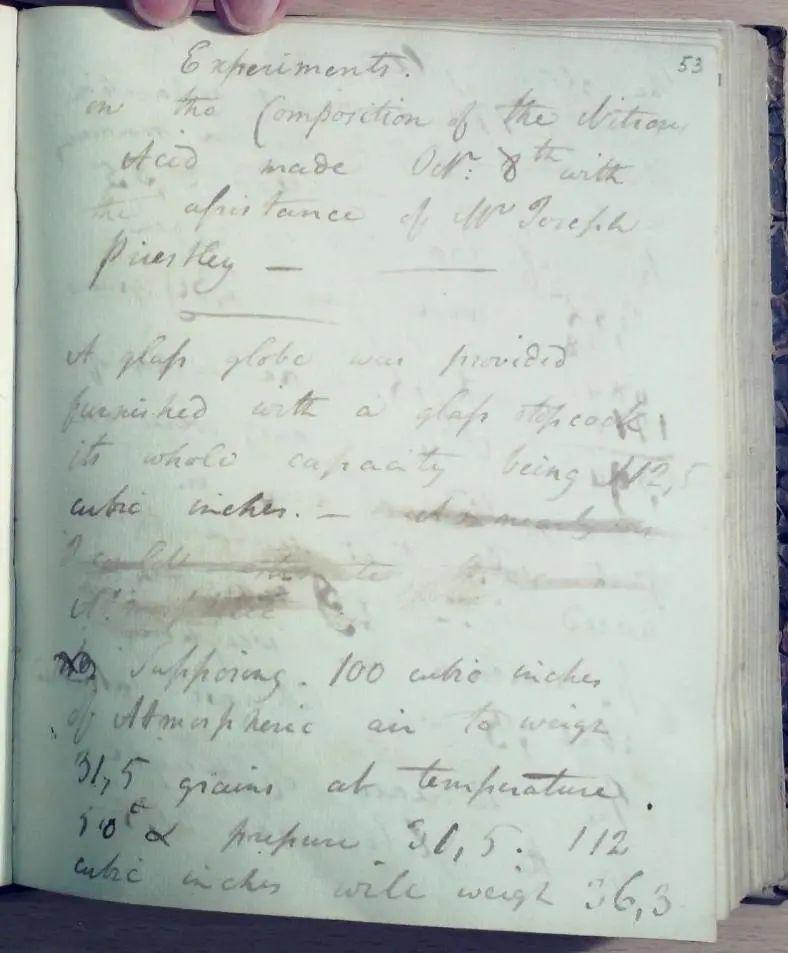 53
Experiments.
on the Composition of the Nitrous
Acid made Octr. 8th with
the assistance of Mr Joseph
Priestley —
A glass globe was provided
furnished with a glass stopcock
its whole capacity being 112,5
cubic inches. —
Supposing. 100 cubic inches
of Atmospheric air to weigh
31,5 grains at temperature.
50° & pressure 31,5. 112
cubic inches will weigh 36,3